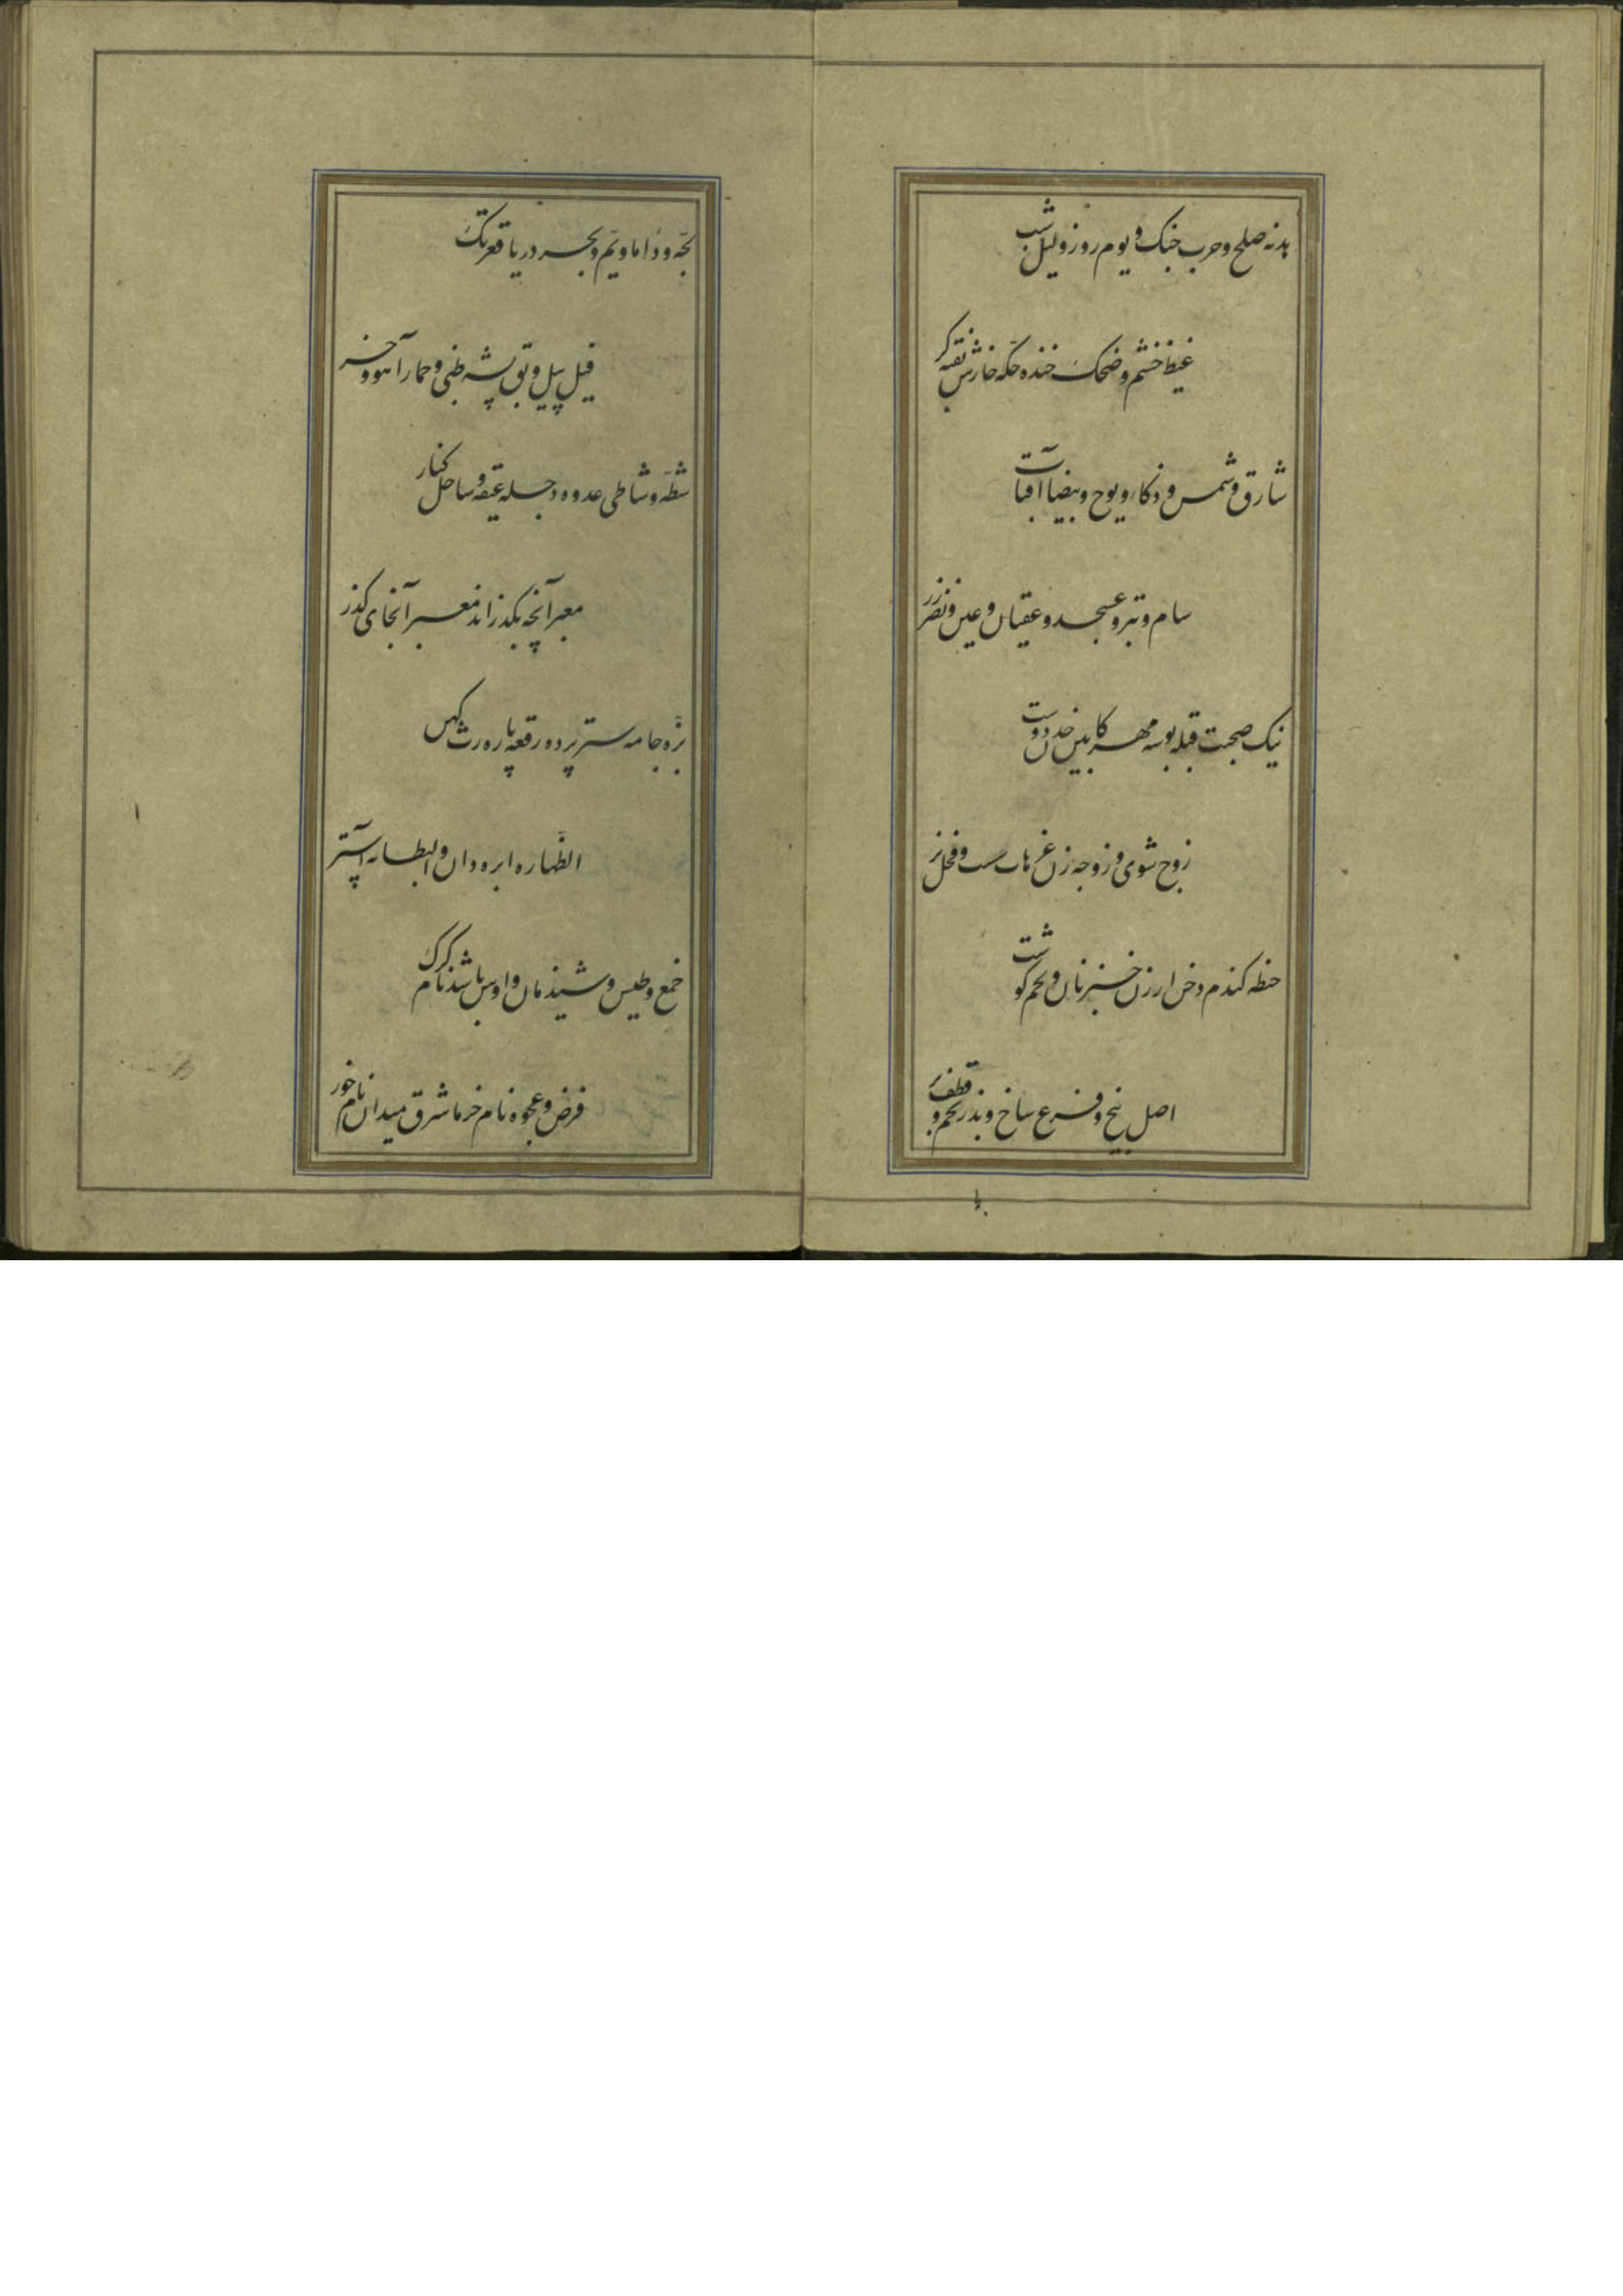 هدنه صلح و حرب جنک و یوم روز و لیل شب
غیظ خشم و ضحک خنده حکه خارش نقبه کر
شارق و شمس و ذکا و یوح و بیضا آفتاب
سام و تبر و عسجد و عقیان و عین و نضر زر
نیک صحبت قبله بوسه مهر کابین خدن دوست
زوج شوی و زوجه زن غر هاست و فحل نر
حنطه کندم دخن ارزن خبز نان و لحم کوشت
اصل بیخ و فرع شاخ و بذر تخم و قطف بر
لجه و داما و یم و بحر دریا قعر تک
فیل پیل و بق پشه ظبی و حمار آهو و خر
شطه و شاطی عدوه و جله عیقه و ساحل کنار
معبر آنچه بکذراند معبر آنجای کذر
بزه جامه ستر پرده رقعه پاره رث کهن
الظهاره ابره دان و البطانه آستر
خمع و طلس و شیذمان و اوس باشد نام کرک
فرض و عجوه نام خرما شرق میدان نام خور